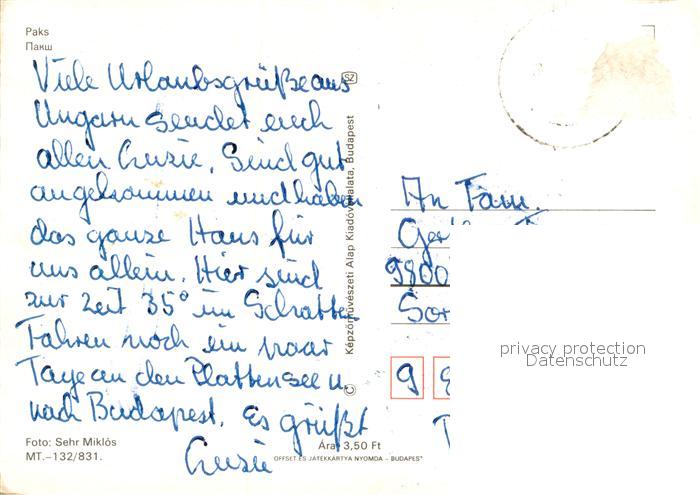 Paks
Пакш
Viele Urlaubsgrüße aus
Ungarn sendet euch
allen Susie. Sind gut
angekommen und haben
das ganze Haus für
uns allein. Hier sind
zur Zeit 35° im Schatten
Fahren noch ein paar
Tage an den Plattensee u.
nach Budapest. Es grüßt
Susie
Foto: Sehr Miklós
MT.–132/831.
Ára: 3,50 Ft
OFFSET ÉS JÁTÉKKÁRTYA NYOMDA – BUDAPEST
SZ
© Képzőművészeti Alap Kiadóvállalata, Budapest
An Fam.
Ger
9800
Sor
9
privacy protection
Datenschutz